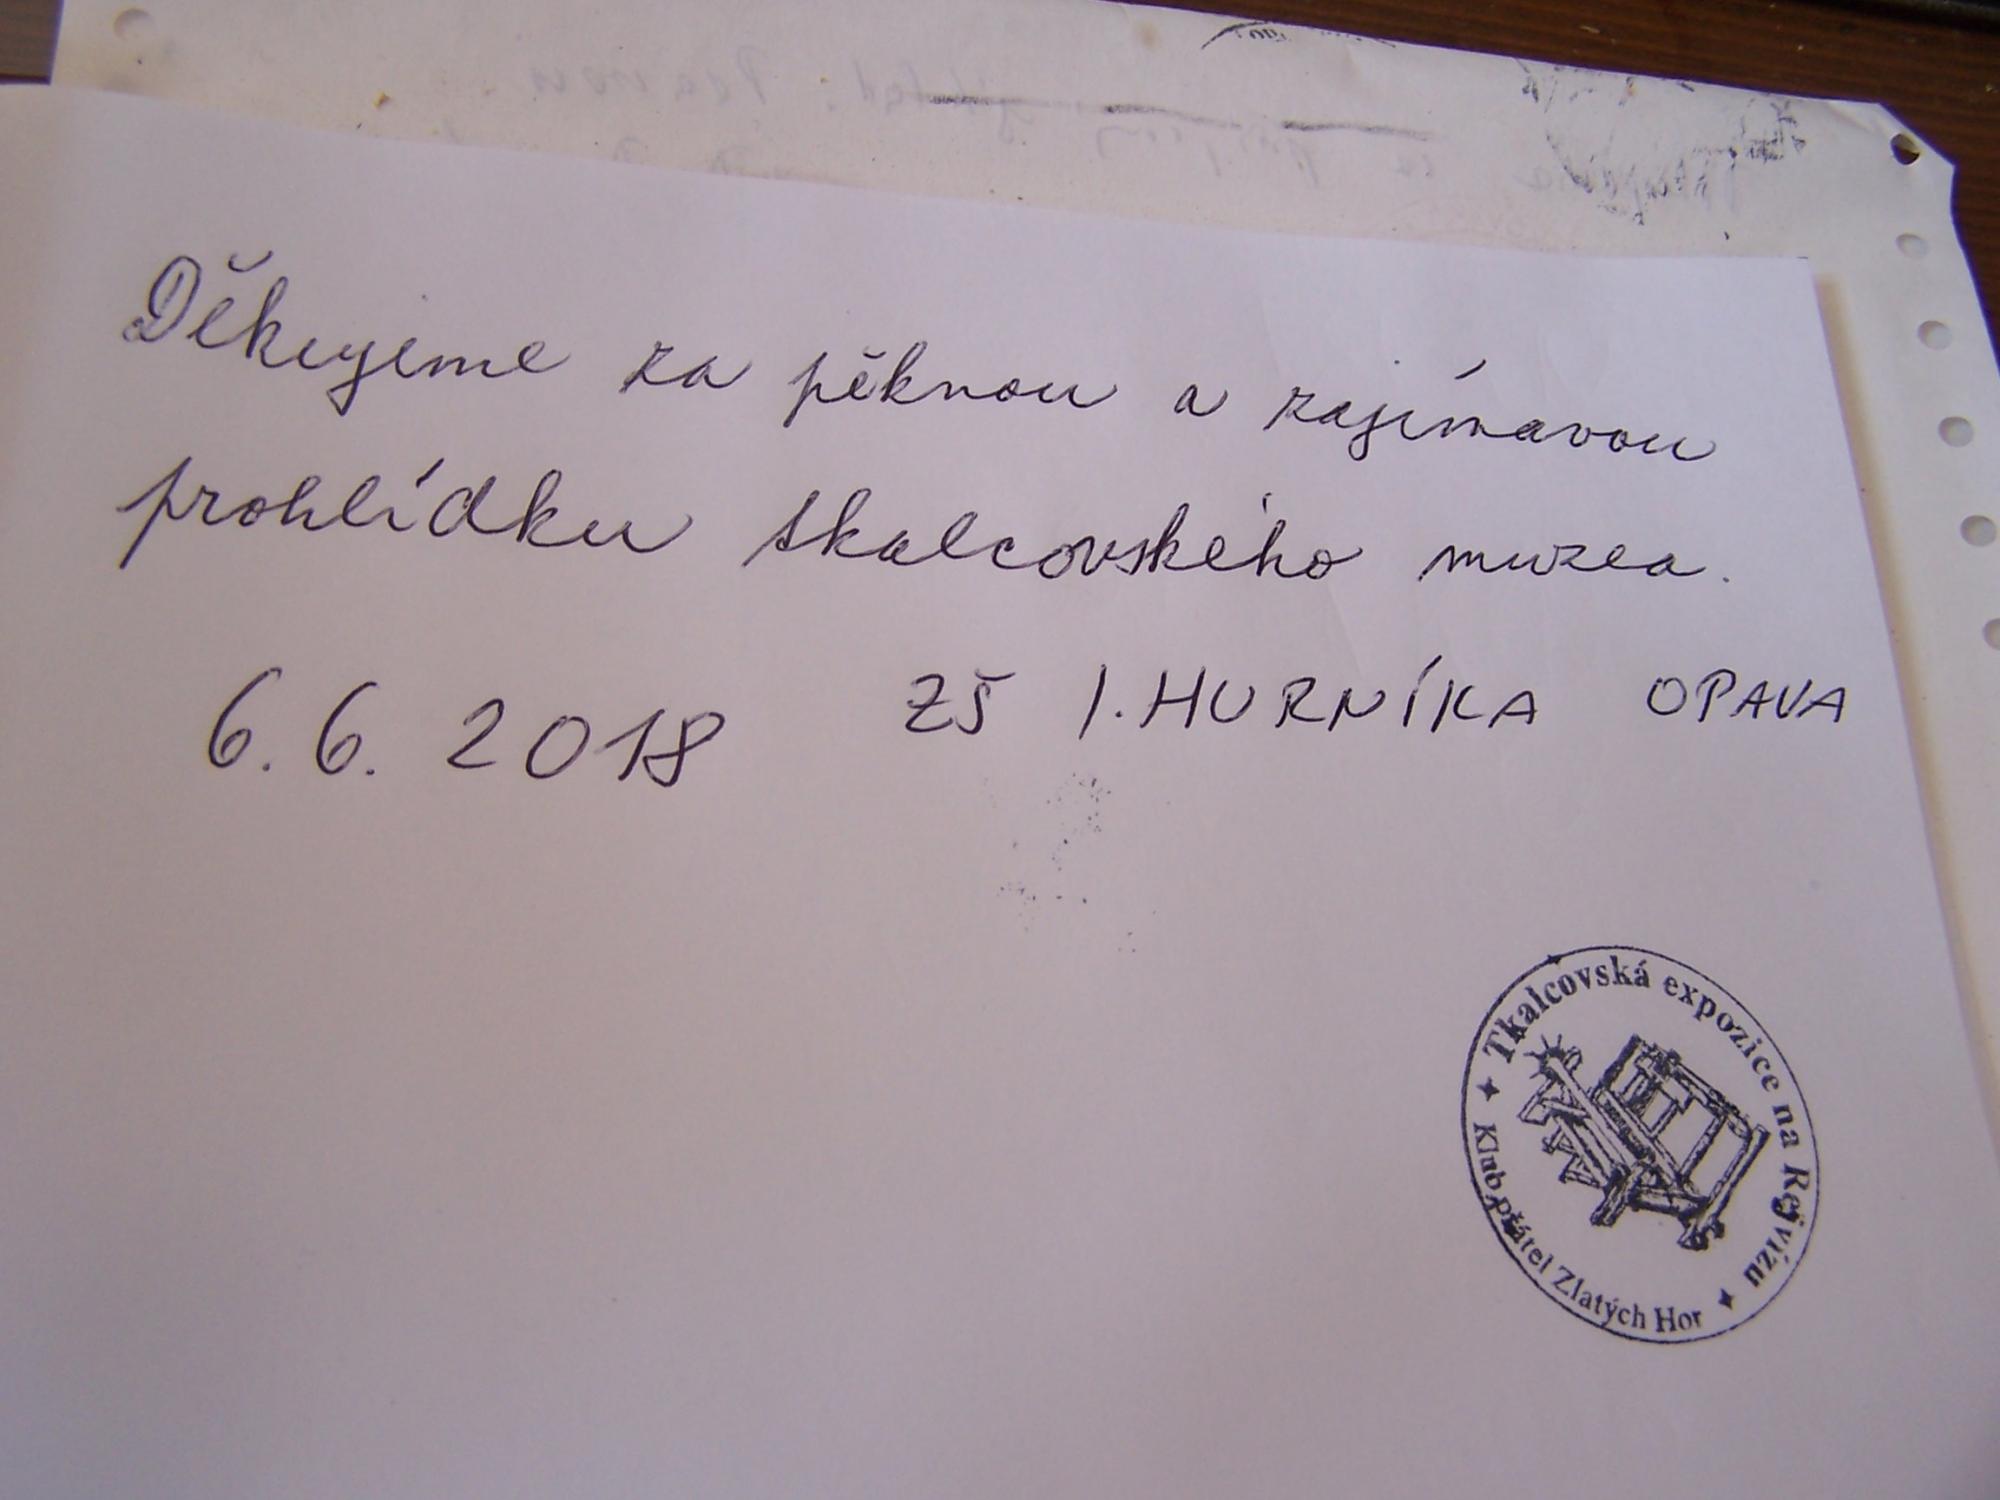 Děkujeme za pěknou a zajímavou
prohlídku tkalcovského muzea.
6.6.2018 ZŠ I. HURNÍKA OPAVA
Tkalcovská expozice na Rejvízu
Klub přátel Zlatých Hor